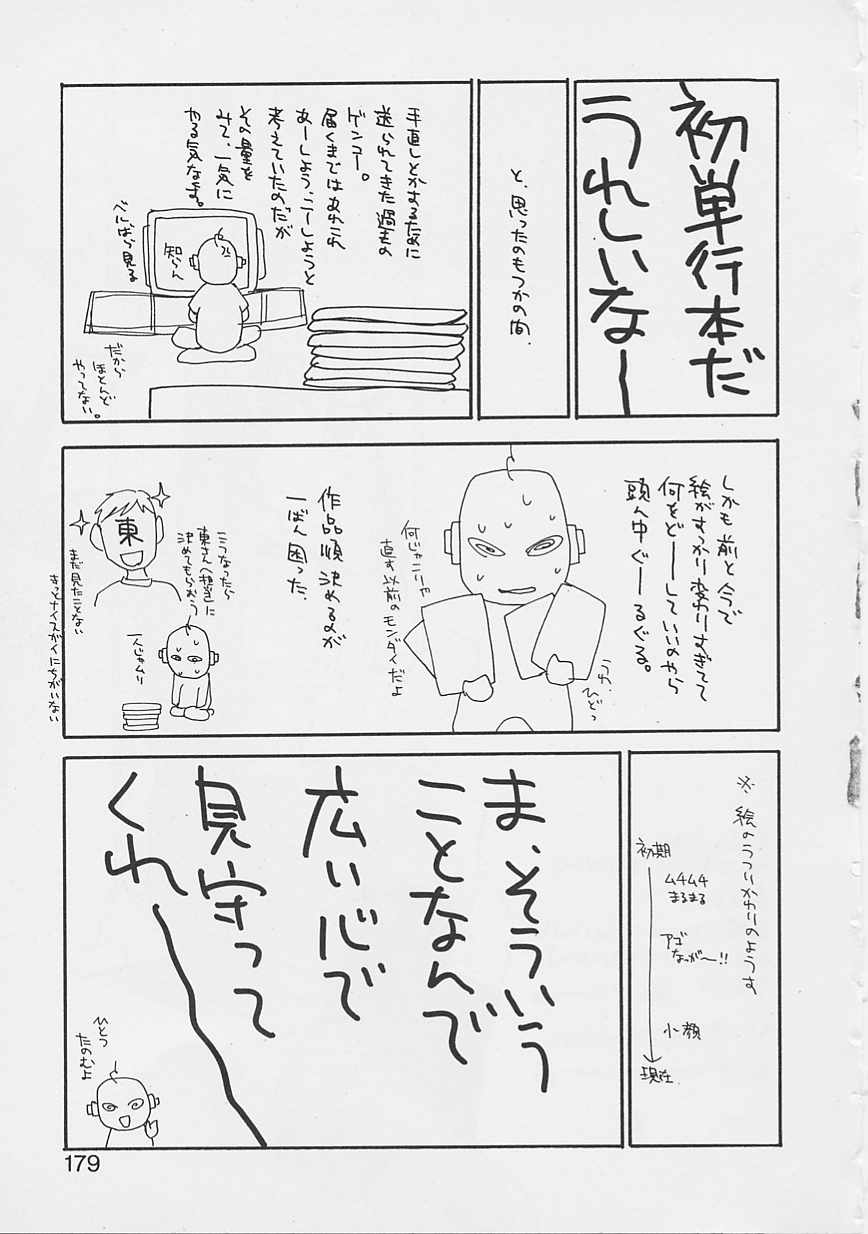 初単行本だ
うれしいなー
と、思ったのもつかの間、
手直しとかするために
送られてきた過去の
ゲンコー。
届くまではあれこれ
あーしよう、こーしようと
考えていたのだが
その量を
みて、一気に
やる気なます。
知らん
べにばら見る
だから
ほとんど
やってない。
しかも前と今で
絵がすっかり変わりすぎてて
何をどーしていいのやら
頭ん中ぐーるぐる。
うわ、
ひどっ
何じゃこりゃ
直す以前のモンダイだよ
作品順決めるのが
一ばん困った。
こうなったら
東さん(担当)に
決めてもらおう
一人じゃムリ
東
まだ見たことない
きっとナイスガイにちがいない
※絵のうつりかわりのようす
初期
ムチムチ
まるまる
アゴ
なっが〜!!
小顔
現在
ま、そういう
ことなんで
広い心で
見守って
くれー
ひとつ
たのむよ
179